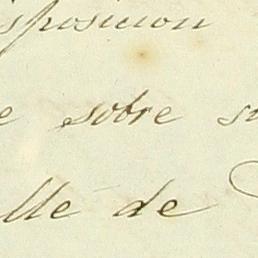 sposicion
e sobre su
lle de